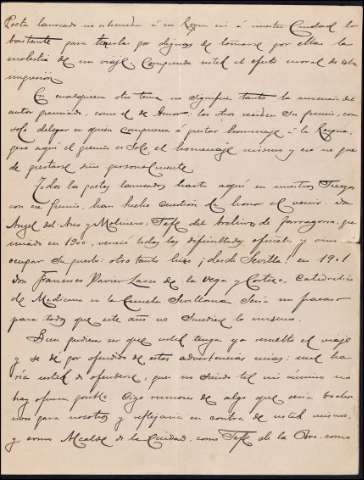 Poeta laureado no atiende á su Reyna ni á nuestra Ciudad lo
bastante para tenerla por dignas de tomarse por ellas la
molestia de un viaje. Comprenda usted el efecto moral de esta
impresión.
En cualquiera otro tema no significa tanto la ausencia del
autor premiado, como el de Amor; los otros reciben su premio, con
solo delegar en quien
pero aquí el premio es solo el homenaje mismo y eso no puede
de prestarse sino personalmente
Todos los poetas laureados hasta aquí en nuestros Juegos
con ese premio, han hecho cuestión de honor el venir. Don
Angel del Arco y Molinero, Jefe del Archivo de Tarragona, pre
miado en 1900, venció todas las dificultades oficiales, y vino á
ocupar su puesto: otro tanto hizo ¡desde Sevilla! en 1901
Don Francisco Javier Lasso de la Vega y Cortezo, Catedrático
de Medicina en la Escuela Sevillana. Sería un fracaso
para todos que este año no sucediera lo mismo.
Bien pudiera ser que usted tenga ya resuelto el viaje
y se dé por ofendido de estas advertencias mias: mal ha
ría usted de ofenderse, que no siendo tal mi ánimo no
hay ofensa posible. Oigo rumores de algo que sería bochor
noso para nosotros y reflejaría en contra de usted mismo,
y como Alcalde de la Ciudad, como Jefe de la